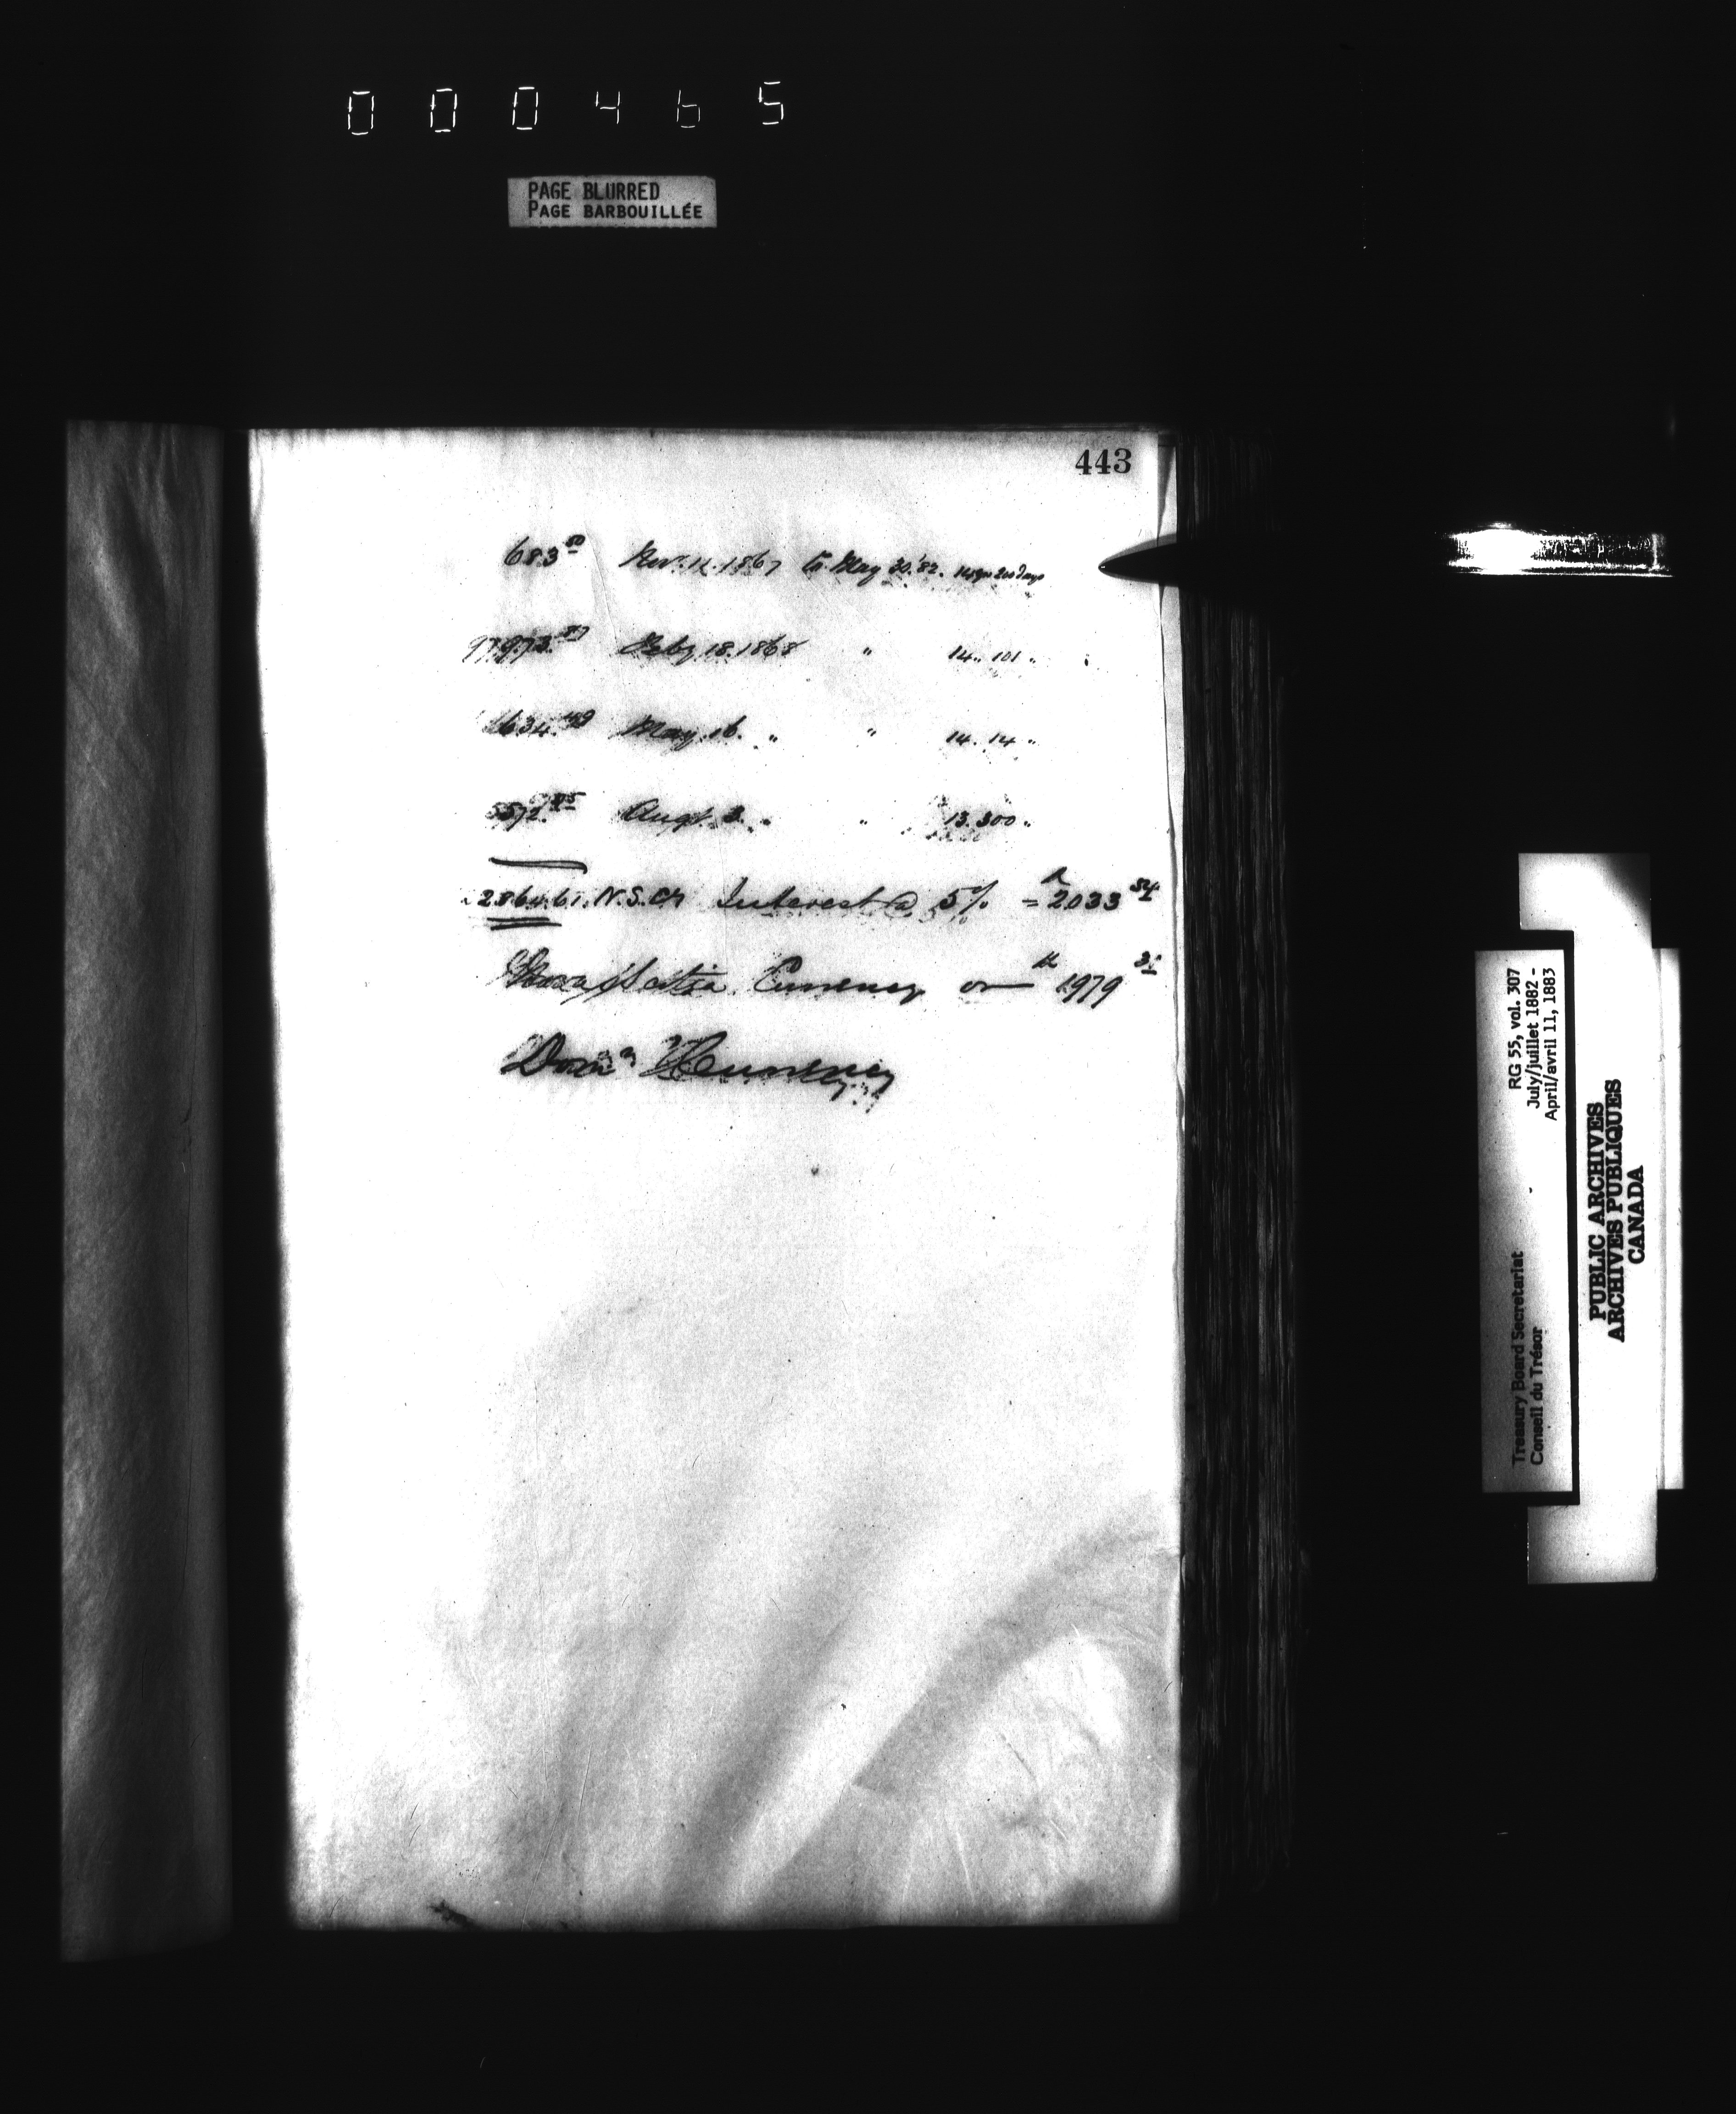 000465
PAGE BLURRED
PAGE BARBOUILLÉE
443
683.50 Nov. 11. 1867 to May 30. '82. 14 yrs 200 days
973.87 Feby 18. 1868 " 14 " 101 "
634.49 May 16. " " 14. 14 "
572.75 Augt. 3. " " 13. 300 "
2864.61 N.S.Cy Interest @ 5% = $2033 54
Nova Scotia Currency or $1979 31
Domn Currency
RG 55, vol. 307
July/juillet 1882 -
April/avril 11, 1883
Treasury Board Secretariat
Conseil du Trésor
PUBLIC ARCHIVES
ARCHIVES PUBLIQUES
CANADA